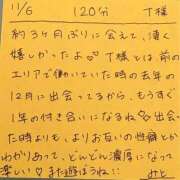 11/6 120分 T様
約3ヶ月ぶりに会えて、凄く
嬉しかったよ♡ T様とは前の
エリアで働いていた時の去年の
12月に出会ってるから、もうすぐ
1年の付き合いになるね◎ 出会っ
た時よりも、よりお互いの性癖とか
わかりあって、どんどん濃厚になって
楽しい♡また遊ぼうね!! みと